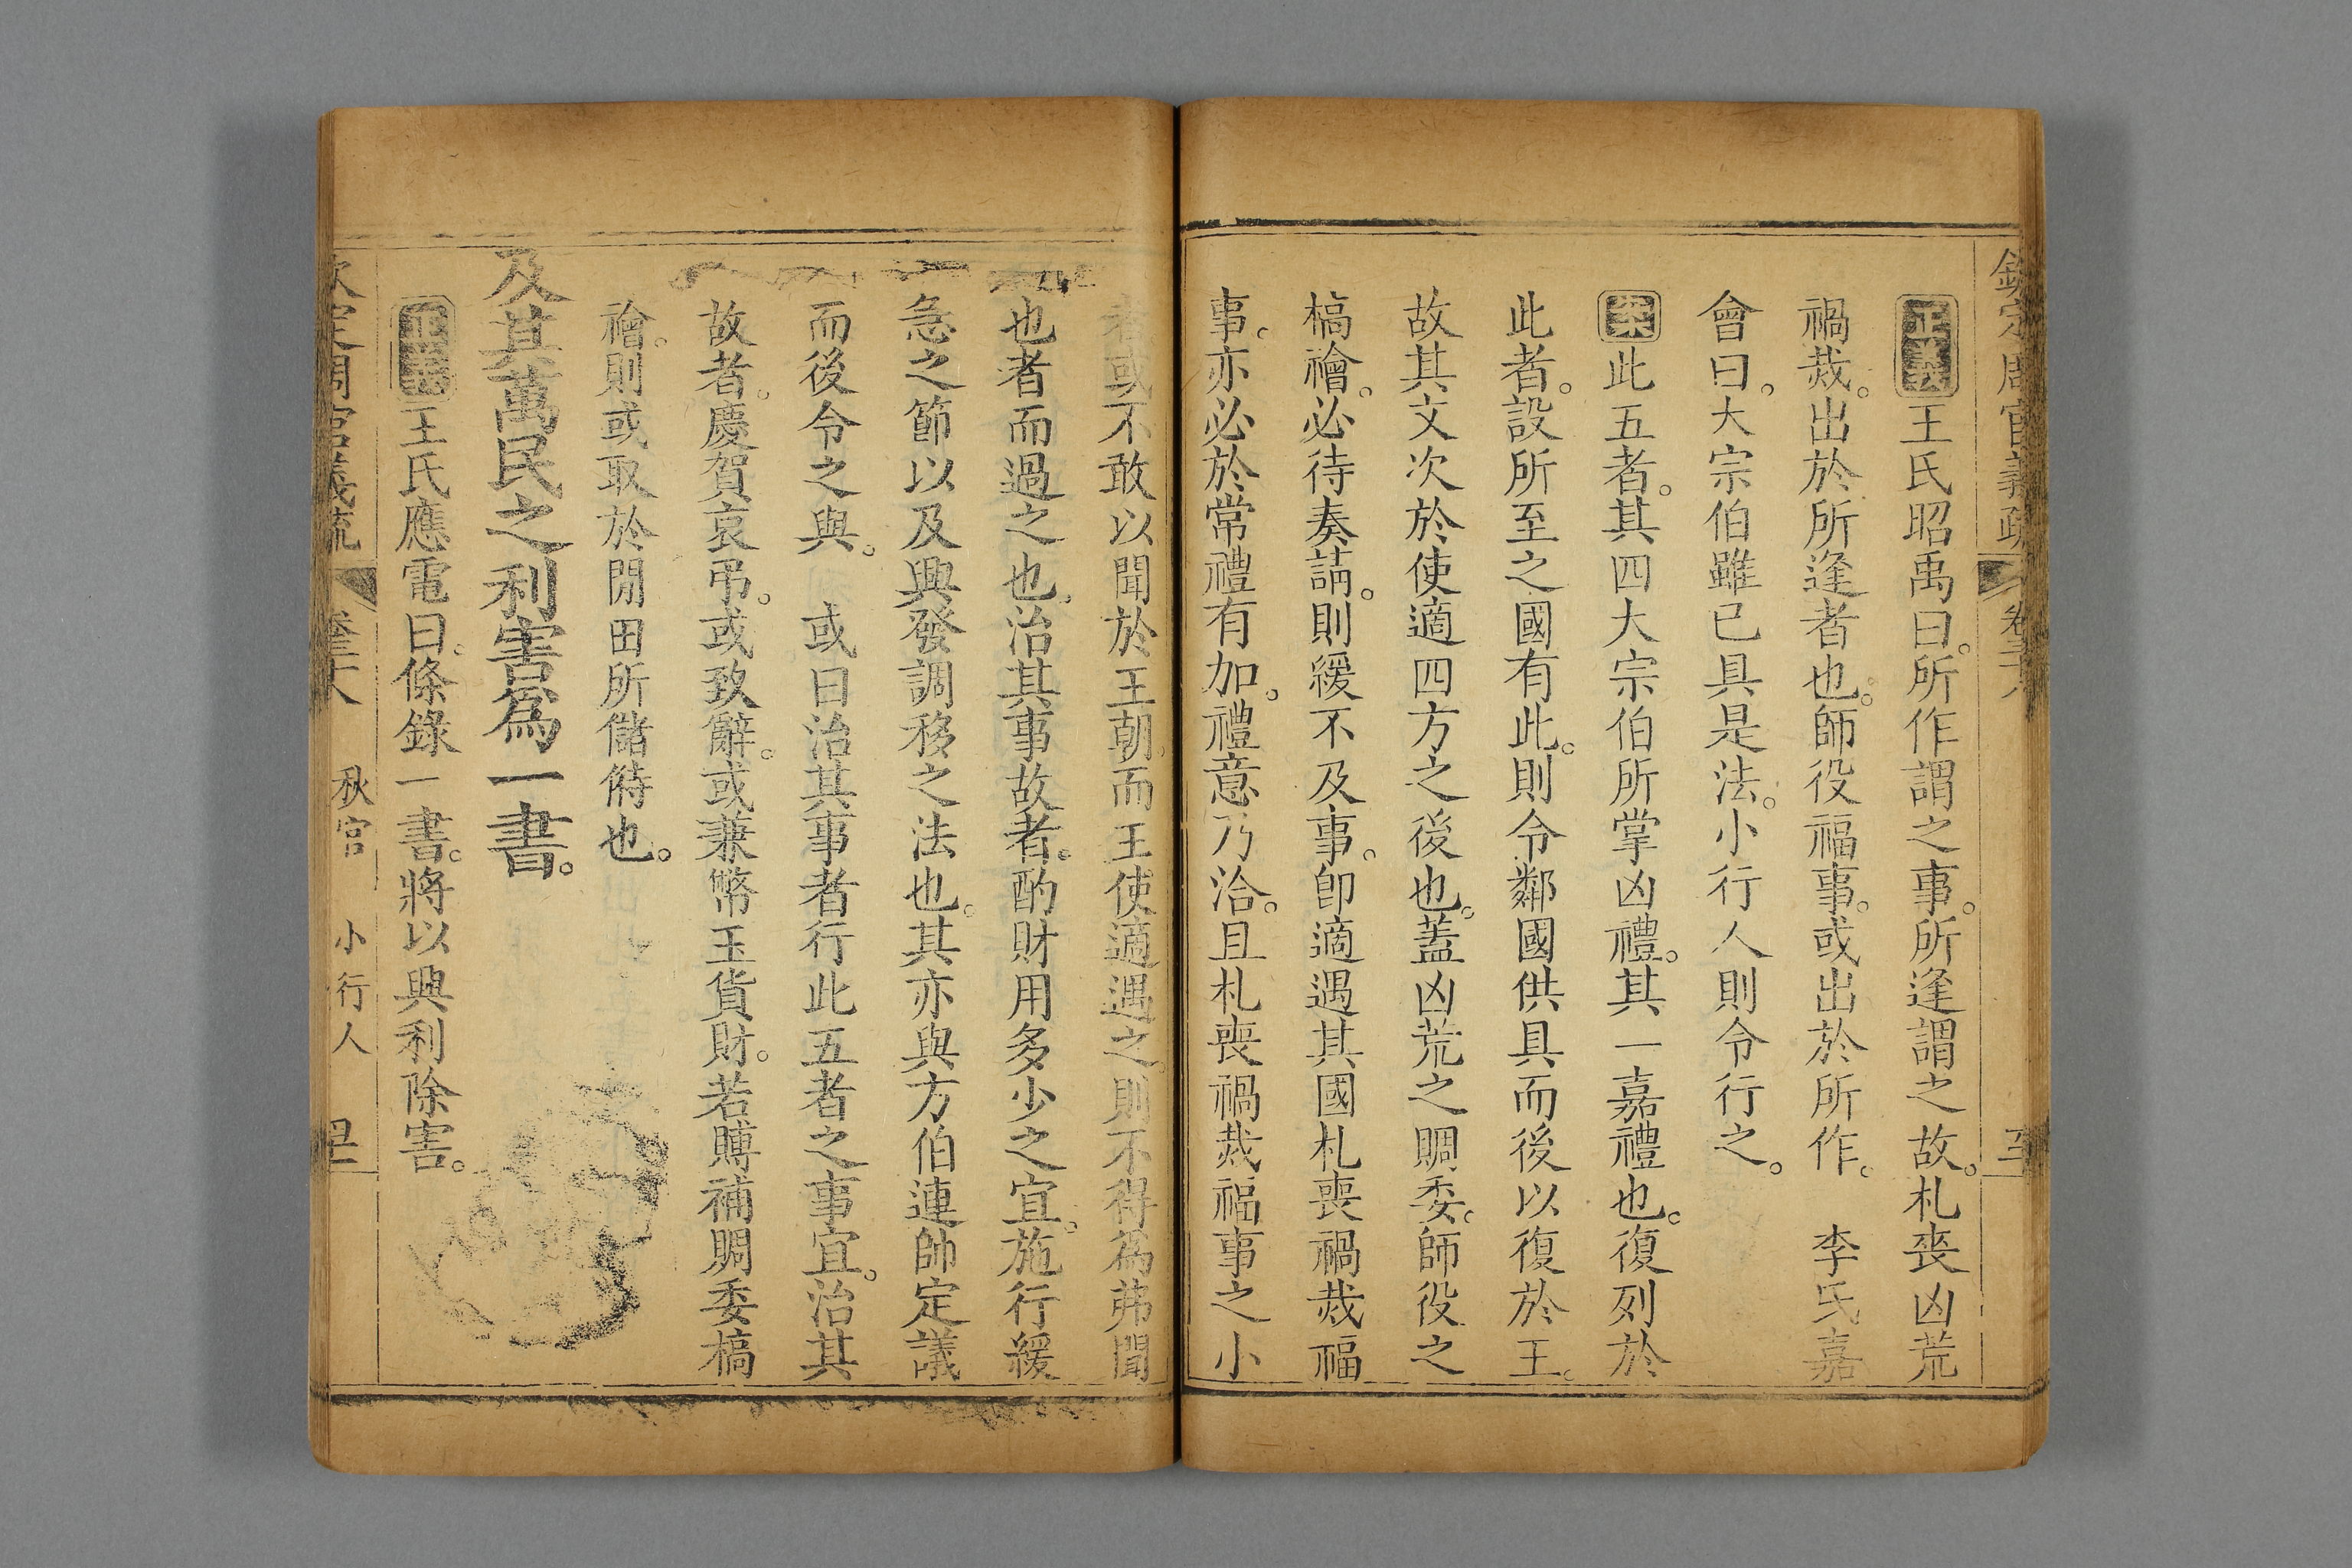 欽定周官義疏 卷三十八
正義王氏昭禹曰。所作謂之事。所逢謂之故。札喪凶荒
禍烖。出於所逢者也。師役福事。或出於所作。 李氏嘉
會曰。大宗伯雖已具是法。小行人則令行之。
案此五者。其四大宗伯所掌凶禮。其一嘉禮也。復列於
此者。設所至之國有此。則令鄰國供具而後以復於王。
故其文次於使適四方之後也。蓋凶荒之賙委。師役之
槁禬。必待奏請。則緩不及事。卽適遇其國札喪禍烖福
事。亦必於常禮有加。禮意乃洽。且札喪禍烖福事之小
者或不敢以聞於王朝。而王使適遇之。則不得為弗聞
也者而過之也。治其事故者。酌財用多少之宜。施行緩
急之節以及興發調移之法也。其亦與方伯連帥定議
而後令之與。 或曰治其事者行此五者之事宜。治其
故者。慶賀哀弔。或致辭。或兼幣玉貨財。若賻補賙委槁
禬。則或取於閒田所儲偫也。
及其萬民之利害為一書。
正義王氏應電曰。條錄一書。將以興利除害。
欽定周官義疏 卷三十八 秋官 小行人